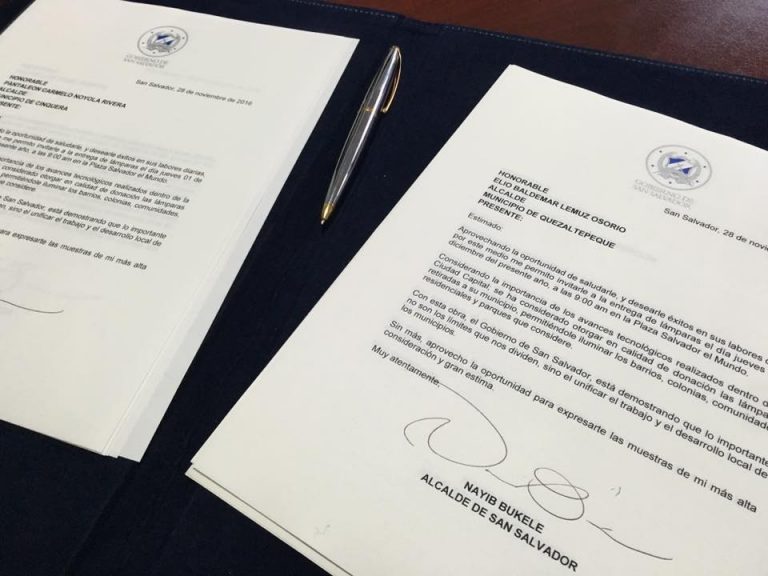 GOBIERNO DE
SAN SALVADOR
San Salvador, 28 de noviembre de 2016
HONORABLE
PANTALEON CARMELO NOYOLA RIVERA
ALCALDE
MUNICIPIO DE CINQUERA
PRESENTE:
la oportunidad de saludarle, y desearle éxitos en sus labores diarias,
me permito invitarle a la entrega de lámparas el día jueves 01 de
año, a las 9:00 am en la Plaza Salvador el Mundo.
importancia de los avances tecnológicos realizados dentro de la
considerado otorgar en calidad de donación las lámparas
permitiéndole iluminar los barrios, colonias, comunidades,
considere.
de San Salvador, está demostrando que lo importante
sino el unificar el trabajo y el desarrollo local de
para expresarte las muestras de mi más alta
GOBIERNO DE
SAN SALVADOR
San Salvador, 28 de
HONORABLE
ELIO BALDEMAR LEMUZ OSORIO
ALCALDE
MUNICIPIO DE QUEZALTEPEQUE
PRESENTE:
Estimado:
Aprovechando la oportunidad de saludarle, y desearle éxitos en sus labores
por este medio me permito invitarle a la entrega de lámparas el día jueves
diciembre del presente año, a las 9:00 am en la Plaza Salvador el Mundo.
Considerando la importancia de los avances tecnológicos realizados dentro de
Ciudad Capital, se ha considerado otorgar en calidad de donación las
retiradas a su municipio, permitiéndole iluminar los barrios, colonias,
residenciales y parques que considere.
Con esta obra, el Gobierno de San Salvador, está demostrando que lo importante
no son los límites que nos dividen, sino el unificar el trabajo y el desarrollo local de
los municipios.
Sin más, aprovecho la oportunidad para expresarte las muestras de mi más alta
consideración y gran estima.
Muy atentamente,
NAYIB BUKELE
ALCALDE DE SAN SALVADOR